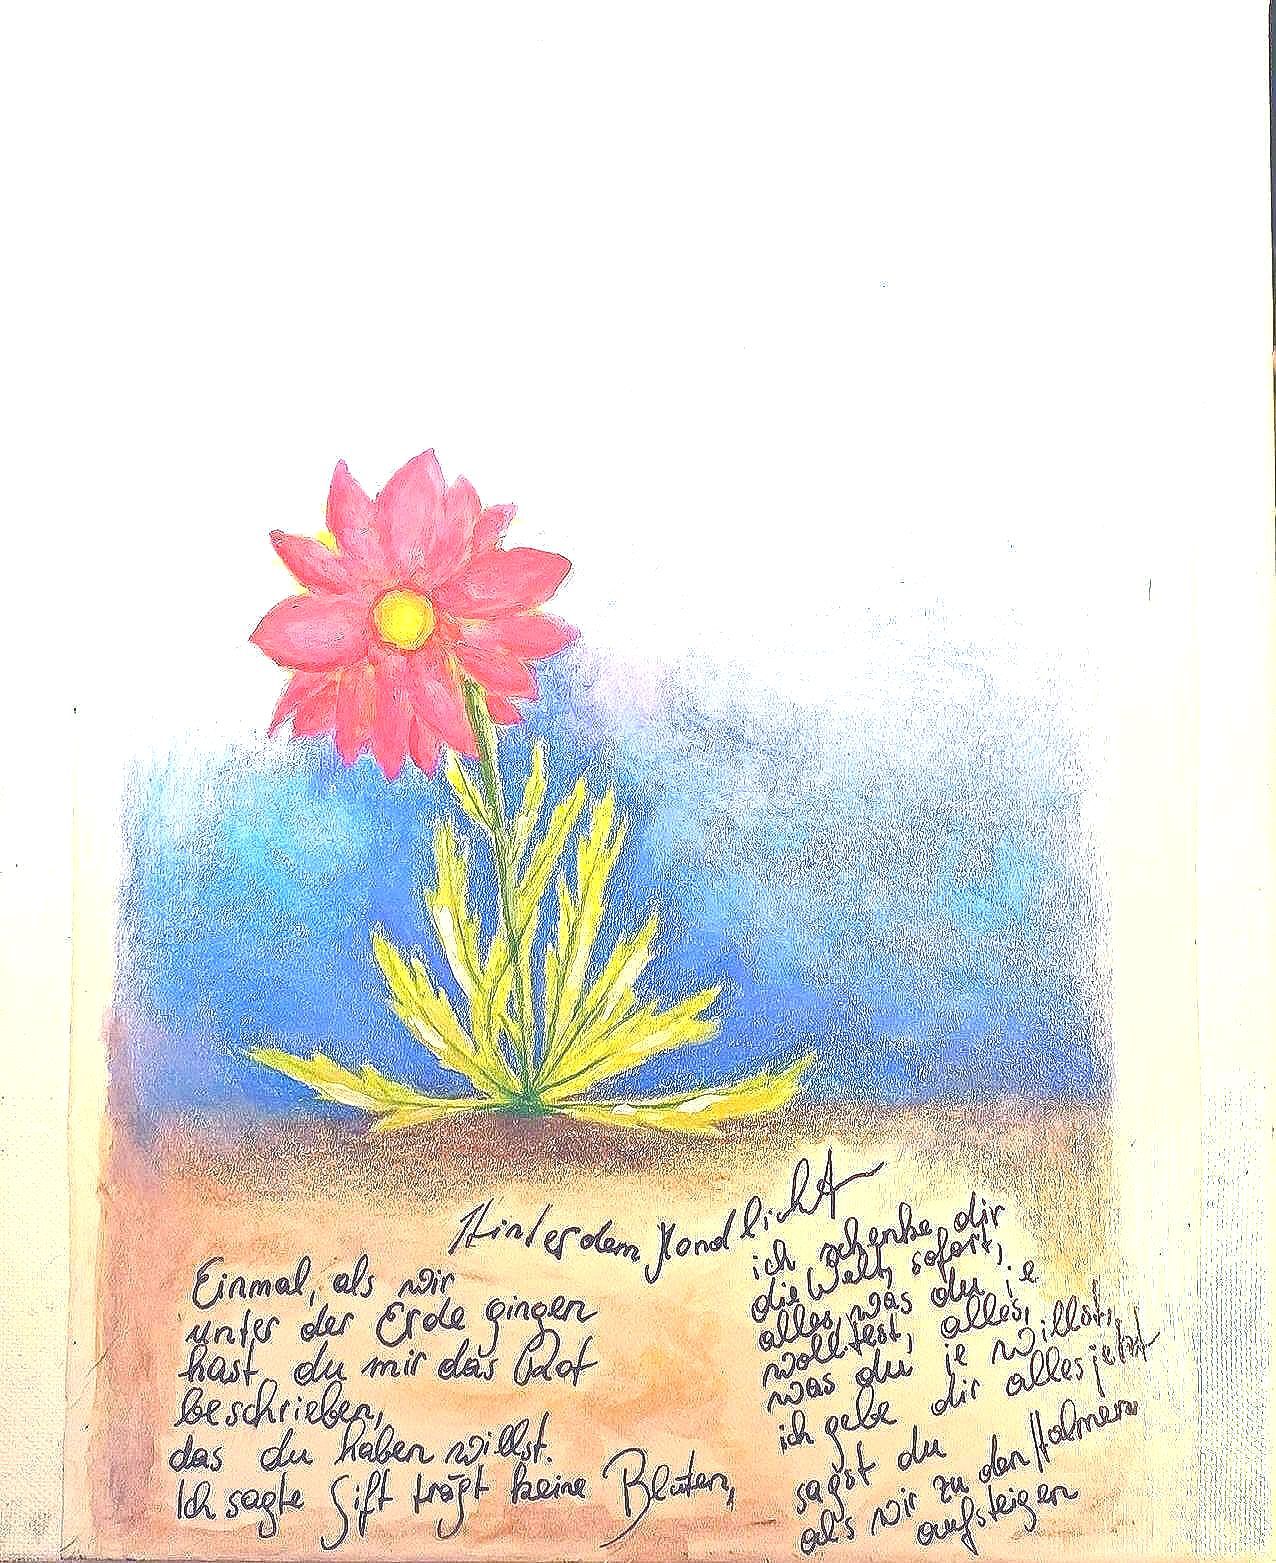 Hinter dem Mondlicht
Einmal, als wir
unter der Erde gingen
hast du mir das Rot
beschrieben,
das du haben willst.
Ich sagte Gift trägt keine Blüten,
ich schenke dir
die Welt, sofort,
alles, was du je
wolltest, alles,
was du je willst,
ich gebe dir alles jetzt
sagst du
als wir zu den Halmen
aufsteigen